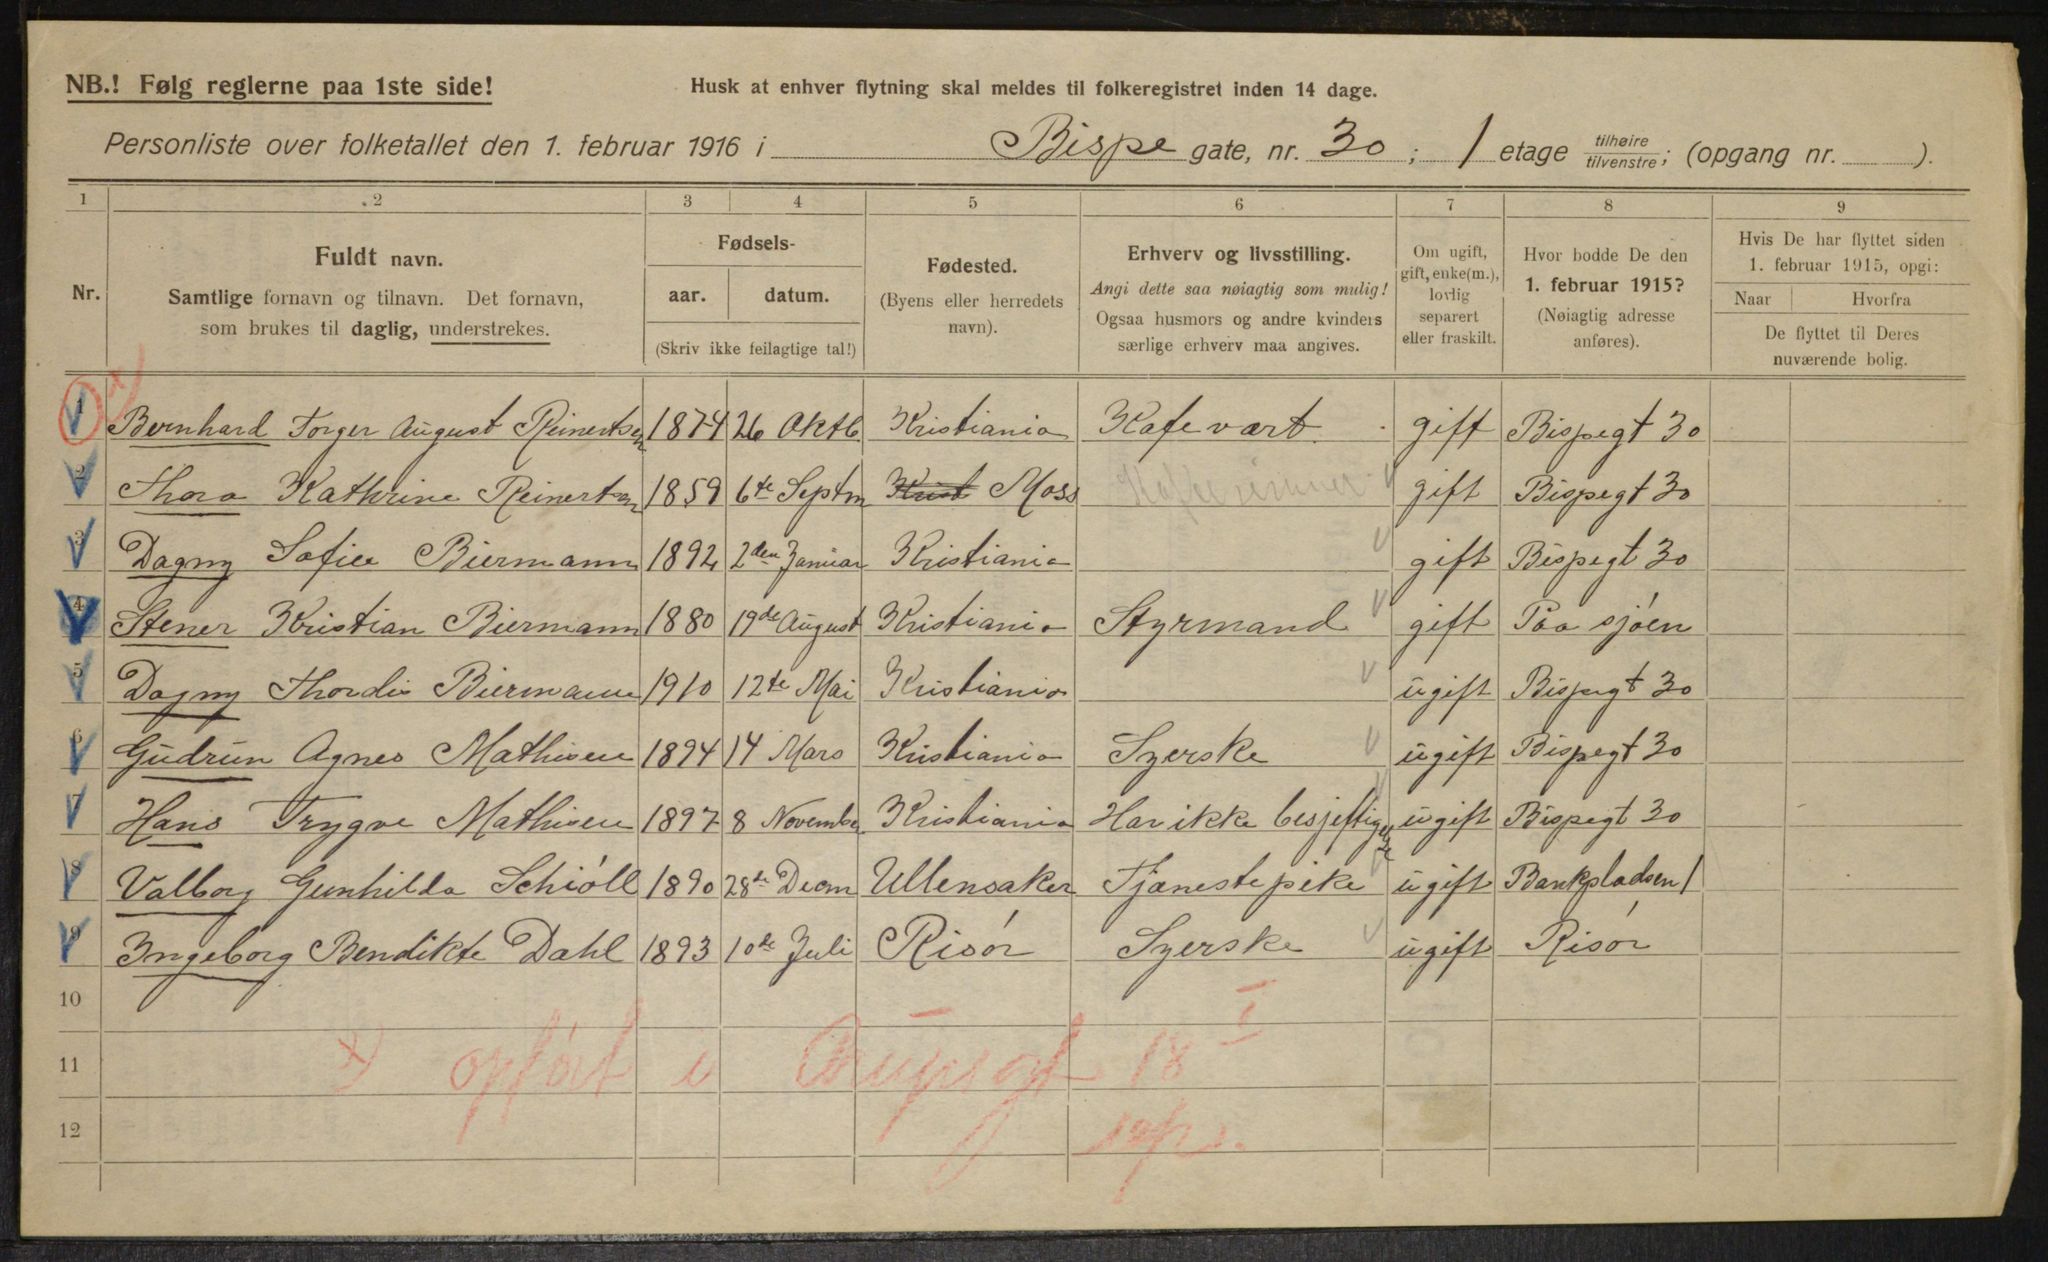 NB.! Følg reglerne paa 1ste side!
Husk at enhver flytning skal meldes til folkeregistret inden 14 dage.
Personliste over folketallet den 1. februar 1916 i Bispe gate, nr. 30 ; 1 etage tilhøire/tilvenstre; (opgang nr. ).
1 2 3 4 5 6 7 8 9
Nr.
Fuldt navn.
Samtlige fornavn og tilnavn. Det fornavn,
som brukes til daglig, understrekes.
Fødsels-
aar. datum.
(Skriv ikke feilagtige tal!)
Fødested.
(Byens eller herredets
navn).
Erhverv og livsstilling.
Angi dette saa nøiagtig som mulig!
Ogsaa husmors og andre kvinders
særlige erhverv maa angives.
Om ugift,
gift, enke(m.),
lovlig
separert
eller fraskilt.
Hvor bodde De den
1. februar 1915?
(Nøiagtig adresse
anføres).
Hvis De har flyttet siden
1. februar 1915, opgi:
Naar Hvorfra
De flyttet til Deres
nuværende bolig.
1 Bernhard Torger August Reinertsen 1874 26 Oktb Kristiania Kafevært gift Bispegt 30
2 Thora Kathrine Reinertsen 1859 6te Septm Krist Moss gift Bispegt 30
3 Dagny Sofie Biermann 1892 2den Januar Kristiania gift Bispegt 30
4 Stener Kristian Biermann 1880 19de August Kristiania Styrmand gift Paa sjøen
5 Dagny Thordis Biermann 1910 12te Mai Kristiania ugift Bispegt 30
6 Gudrun Agnes Mathisen 1894 14 Mars Kristiania Syerske ugift Bispegt 30
7 Hans Trygve Mathisen 1897 8 November Kristiania Har ikke besjeftigelse ugift Bispegt 30
8 Valborg Gunhilda Schiöll 1890 28de Decm Ullensaker Tjænestepike ugift Bankpladsen 1
9 Ingeborg Bendikte Dahl 1893 10de Juli Risør Syerske ugift Risør
10
x) opført i 18 I
11
12